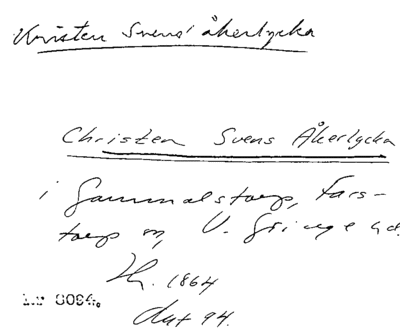 Kristen Svens' åkerlycka
Christen Svens Åkerlycka
i Gammalstorp, Fars-
torp sn, V. Göinge hd.
Lr 8094.
1864
94.